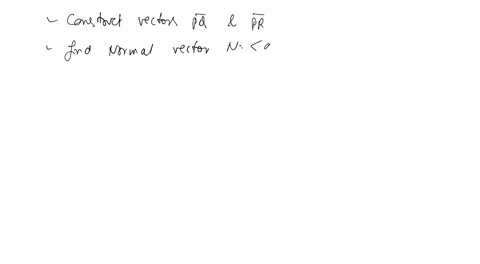 - Construct vectors PQ & PR
- find Normal vector N: <a